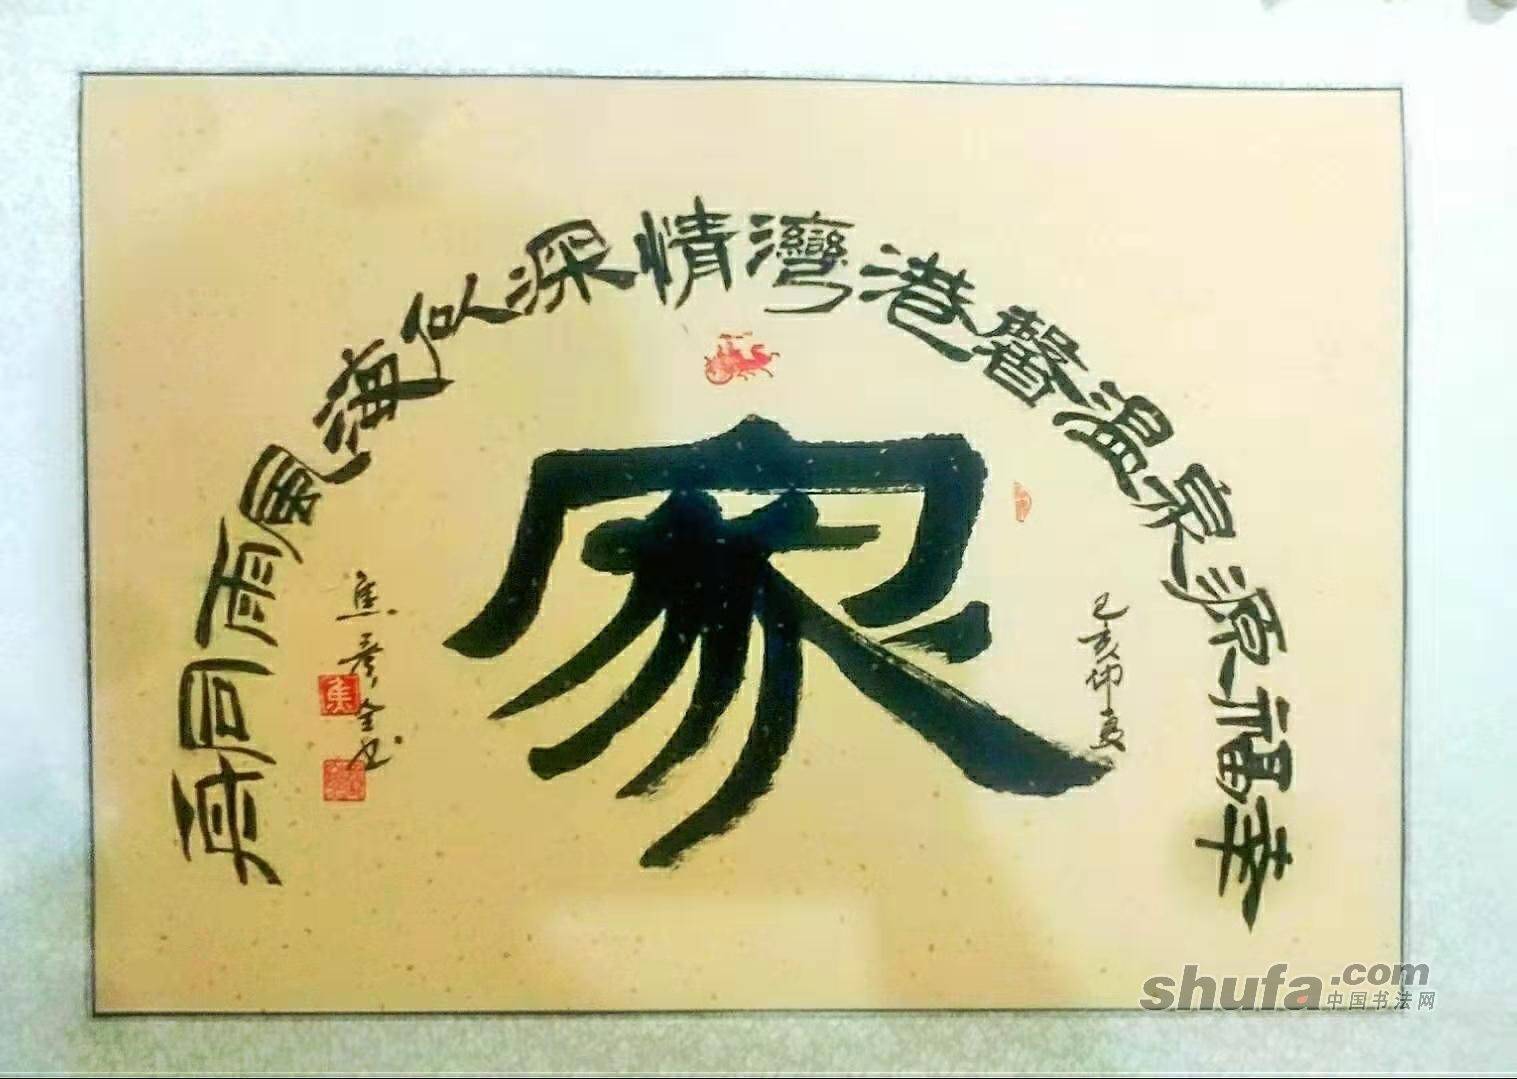 幸福源泉温馨港灣情深似海風雨同舟
家
己亥仲夏
焦彦全书
焦
shufa.com
中国书法网